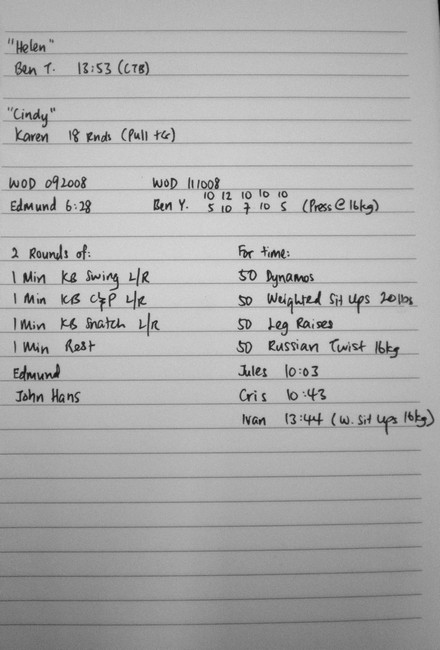 "Helen"
Ben T. 13:53 (CTB)
"Cindy"
Karen 18 Rnds (Pull +G)
WOD 092008
Edmund 6:28
WOD 111008
10 12 10 10 10
Ben Y. 5 10 7 10 5 (Press @ 16kg)
2 Rounds of:
1 Min KB Swing L/R
1 Min KB C&P L/R
1 Min KB Snatch L/R
1 Min Rest
Edmund
John Hans
For time:
50 Dynamos
50 Weighted Sit Ups 20lbs
50 Leg Raises
50 Russian Twist 16kg
Jules 10:03
Cris 10:43
Ivan 13:44 (W. Sit Ups 16kg)